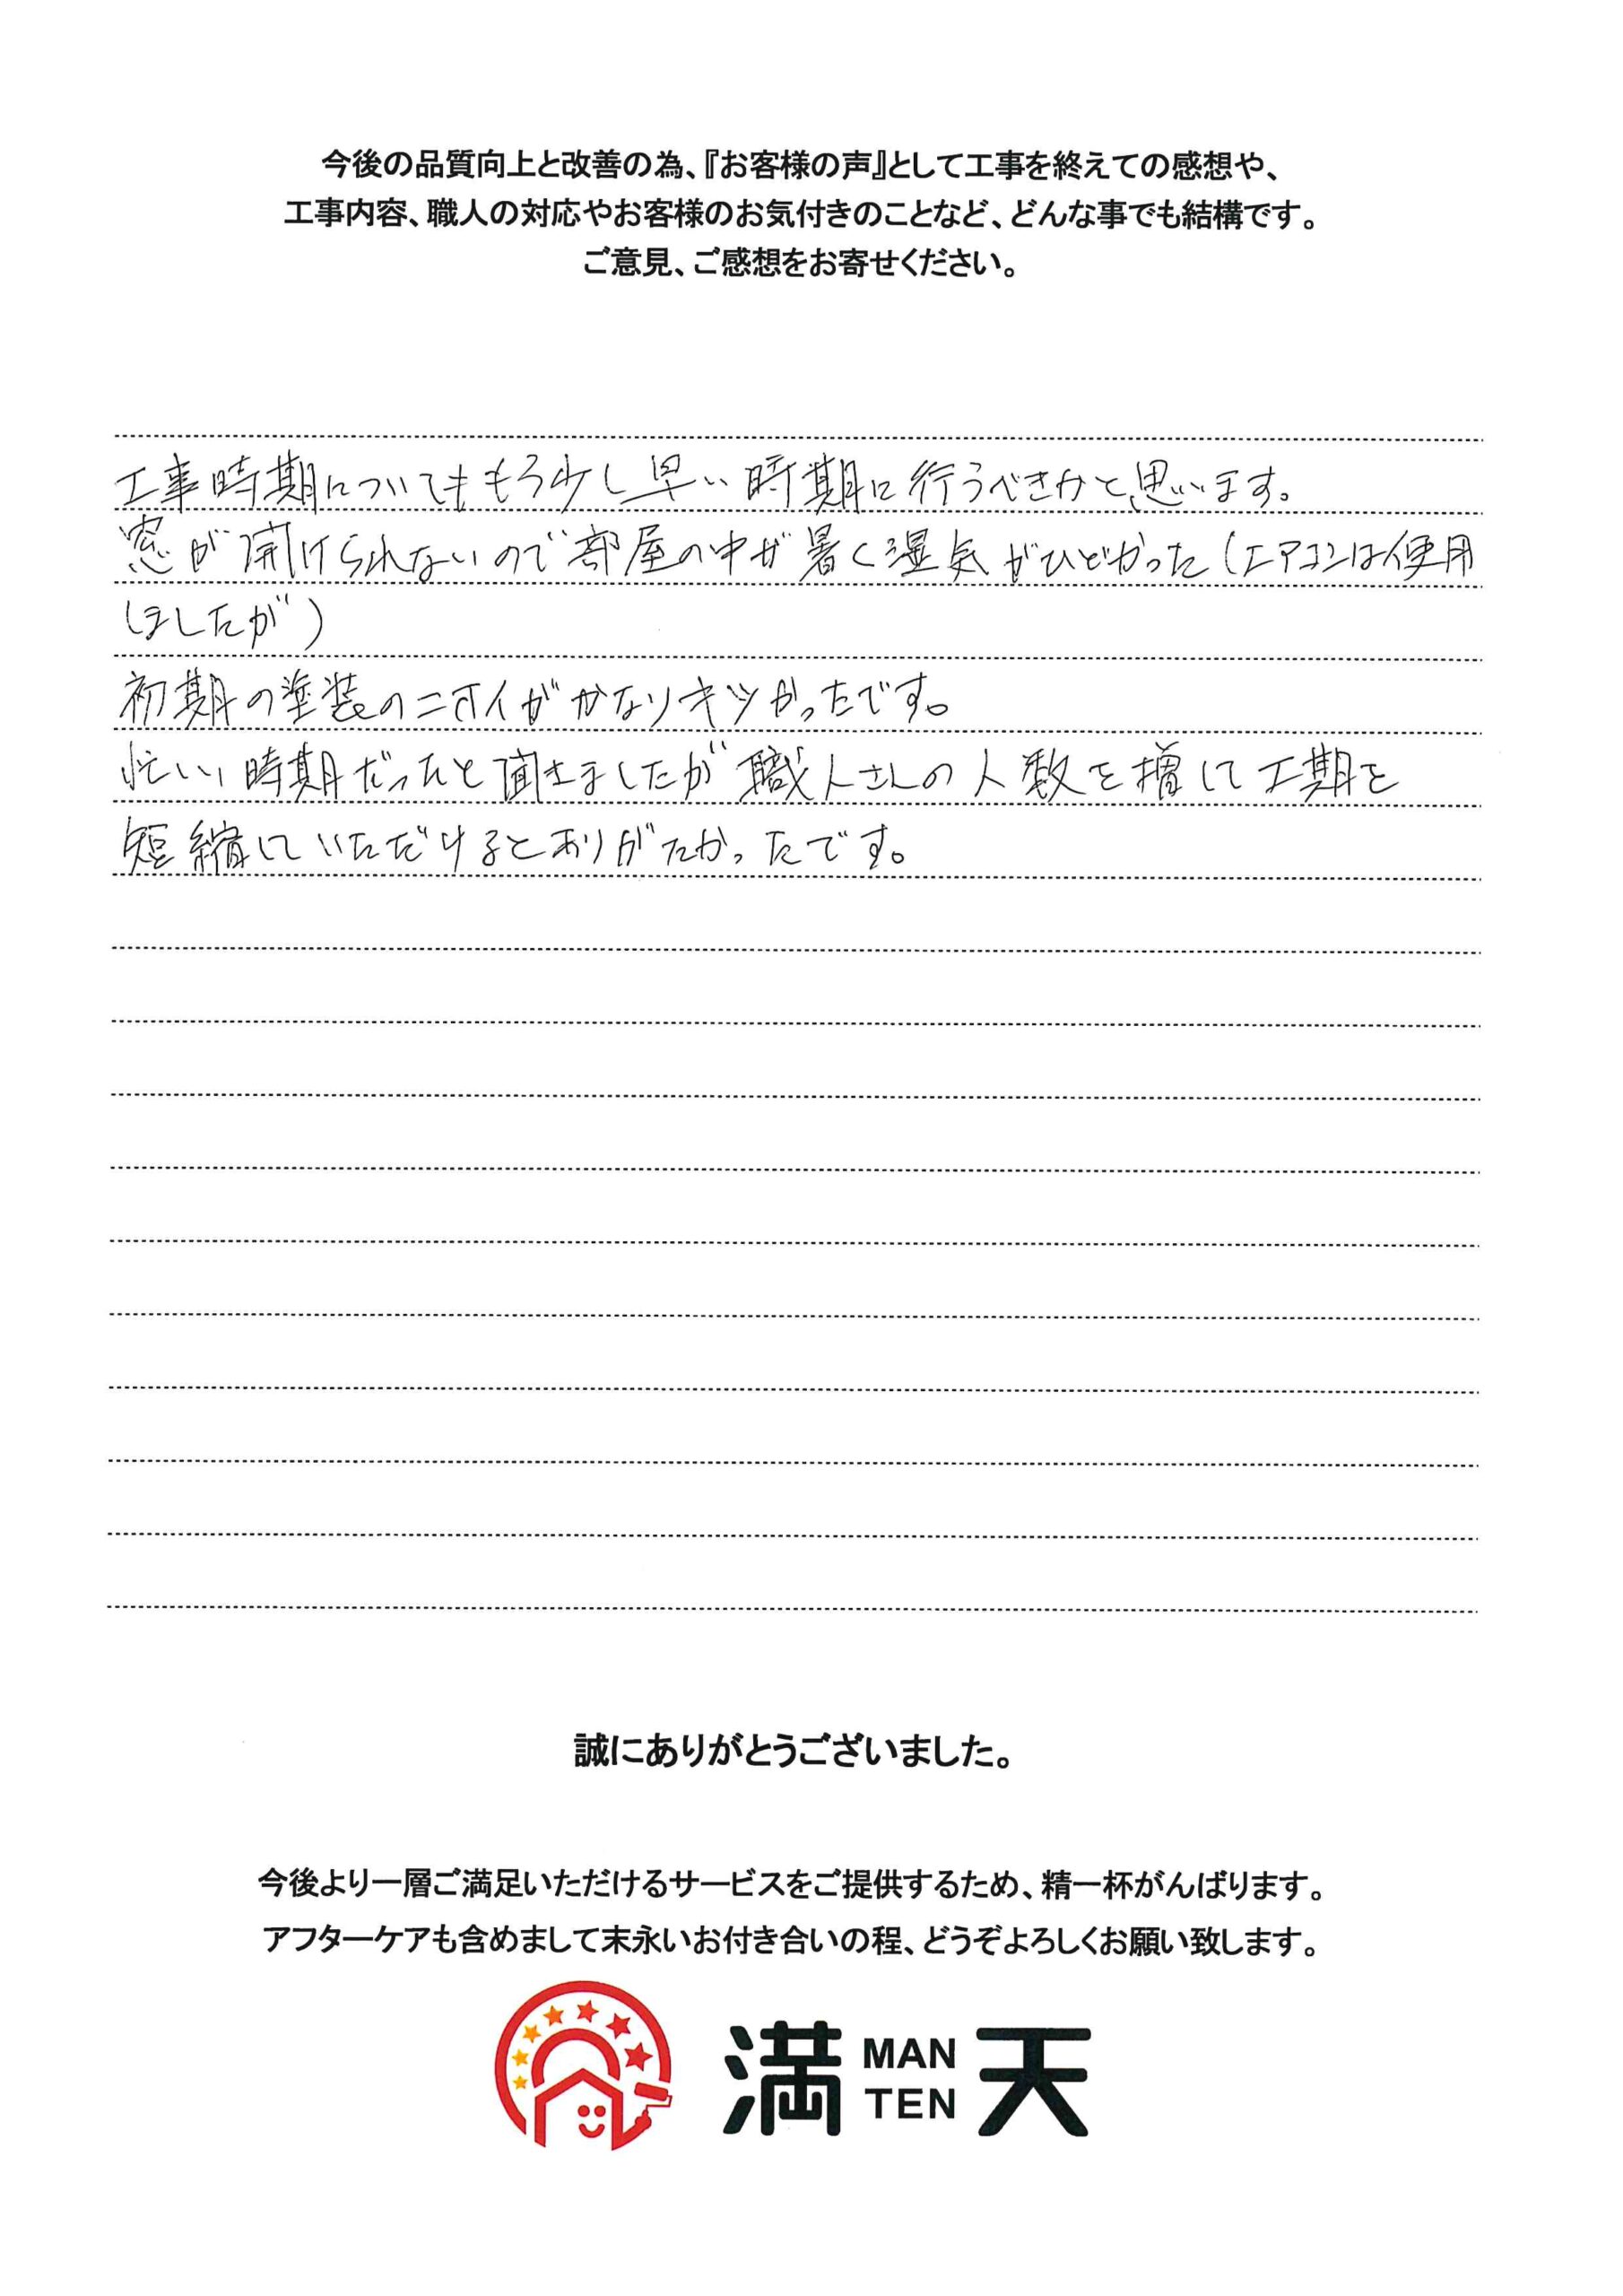 今後の品質向上と改善の為、『お客様の声』として工事を終えての感想や、
工事内容、職人の対応やお客様のお気付きのことなど、どんな事でも結構です。
ご意見、ご感想をお寄せください。
工事時期についてももう少し早い時期に行うべきかと思います。
窓が開けられないので部屋の中が暑く湿気がひどかった(エアコンは使用
しましたが)
初期の塗装のニオイがかなりキツかったです。
忙しい時期だったと聞きましたが職人さんの人数を増して工期を
短縮していただけるとありがたかったです。
誠にありがとうございました。
今後より一層ご満足いただけるサービスをご提供するため、精一杯がんばります。
アフターケアも含めまして末永いお付き合いの程、どうぞよろしくお願い致します。
満 MAN TEN 天